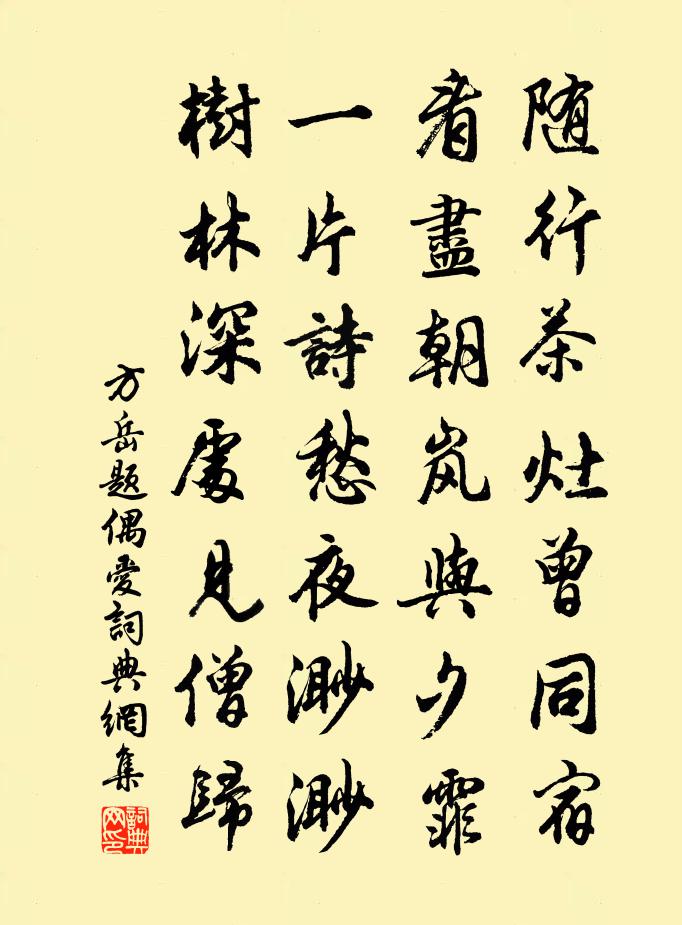 随行茶灶曾同宿
看盡朝岚與夕霏
一片詩愁夜渺渺
樹林深處見僧歸
方岳題偶愛詞典網集
詞典網印